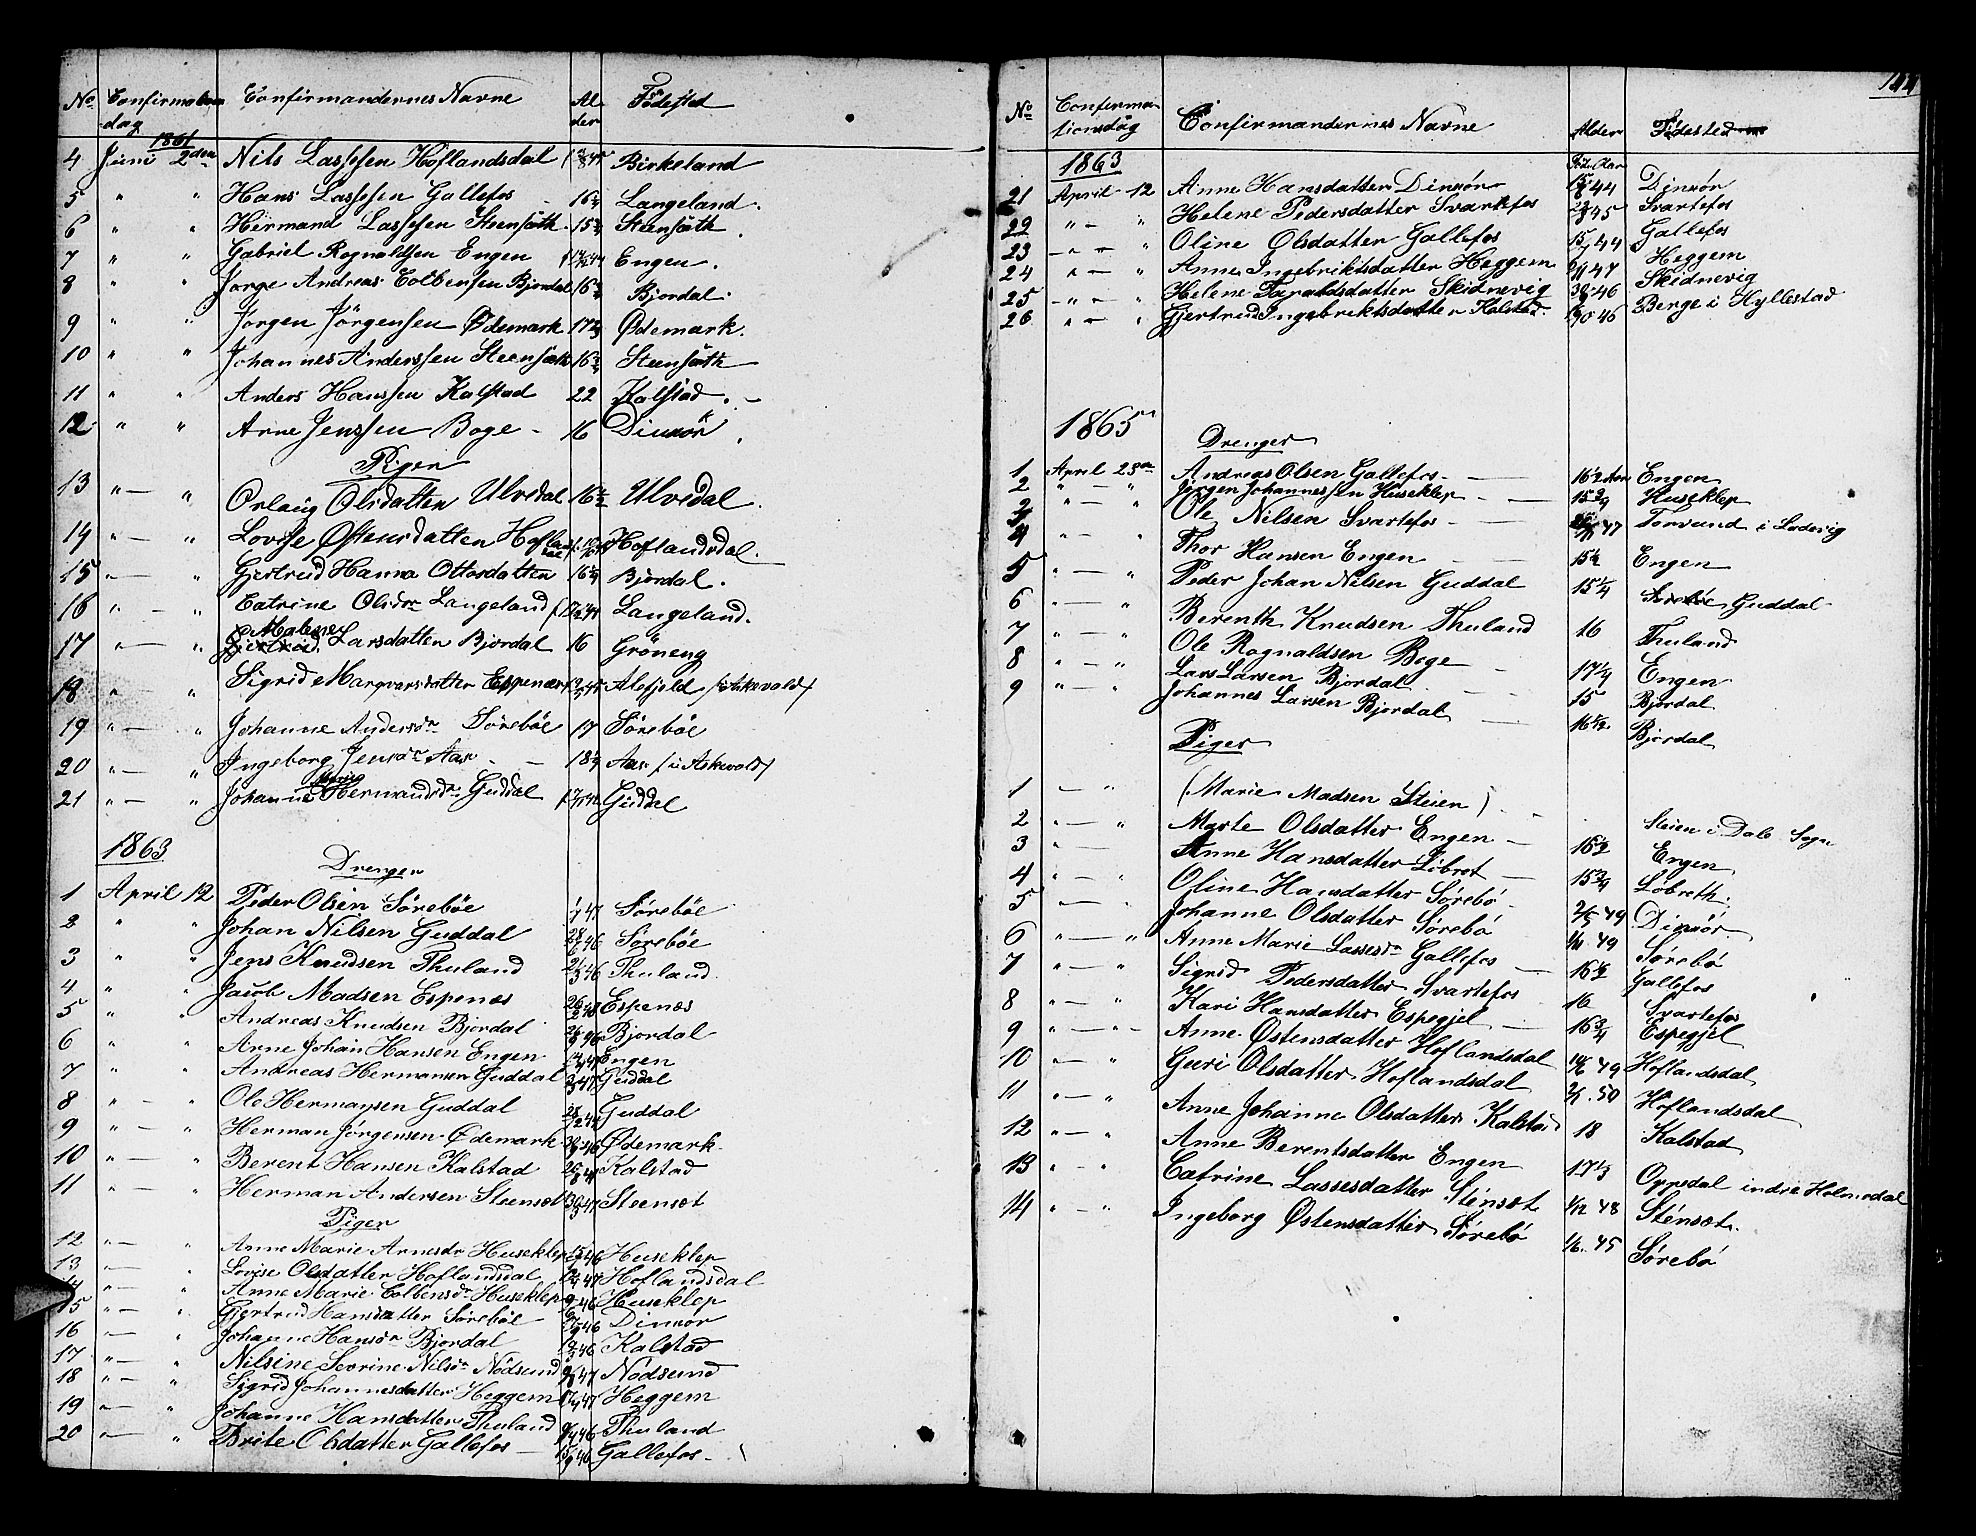 No Confirmations dag Confirmandernes Navne Alder Fødested
1861
4 Juni 2den Nils Lassesen Hoflandsdal Birkeland
5 " " Hans Lassesen Gallefos 16 Langeland.
6 " " Hermand Lassesen Steensæth 15 Steensæth
7 " " Gabriel Ragnaldsen Engen Engen.
8 " " Jørge Andreas Colbensen Bjordal 16 Bjordal.
9 " " Jørgen Jørgensen Ødemark 17 Ødemark.
10 " " Johannes Anderssen Steensæth 16 Steensæth
11 " " Anders Hanssen Kalstad 22 Kalstad. -
12 " " Arne Jenssen Boge - 16 Dinsør
Piger
13 " — " Orlaug Olsdatter Ulvedal 16 Ulvedal.
14 " — " Lovise Ostensdatter Hoflandsdal Hoflandsdal.
15 " — " Gjertrud Hanna Ottosdatter 16 Bjordal.
16 " — " Catrine Olsdr Langeland Langeland.
17 " — " Malene Larsdatter Bjordal 16 Gröneng
18 " — " Sigrid Marqvarsdatter Espenæs Alefjeld / i Askevold /
19 " — " Johanne Andersdr Sörebøe 17 Sörebøe
20 " — " Ingeborg Jensdr Aase - 18 Aase / i Askevold /
21 " — " Johanne Marie Hermandsdr Guddal Guddal
1863
Drenger
1 April 12 Peder Olsen Sörebøe 1/1 47 Sörebøe
2 " " Johan Nilsen Guddal 28/6 46 Sörebøe
3 " " Jens Knudsen Thuland 21/3 46 Thuland
4 " " Jacob Madsen Espenæs Espenæs
5 " " Andreas Knudsen Bjordal Bjordal
6 " " Arne Johan Hansen Engen Engen
7 " " Andreas Hermansen Guddal Guddal
8 " - " Ole Hermansen Guddal Guddal
9 " — " Herman Jörgensen Ødemark Ødemark
10 " — " Berent Hansen Kalstad Kalstad
11 " — " Herman Andersen Steensæt Steensæt
Piger
12 " — " Anne Marie Arnesdr Huseklep Huseklep
13 " — " Lovise Olsdatter Hoflandsdal Hoflandsdal
14 Anne Marie Colbensdr Huseklep Huseklep
15 " — " Gjertrud Hansdatter Sörebøe Dinsör
16 " — " Johanne Hansdr Bjordal Kalstad
17 " — " Nilsine Sevrine Nilsdr Nödsund Nödsund
18 " — " Sigrid Johannesdatter Heggem Heggem
19 " — " Johanne Hansdatter Thuland Thuland
20 " — " Brite Olsdatter Gallefos Gallefos
144
No Confirmationsdag Confirmandernes Navne Alder Fødested
1863
21 April 12 Anne Hansdatter Dinsör 44 Dinsör
22 " — " Helene Pedersdatter Svartefos 45 Svartefos
23 " — " Oline Olsdatter Gallefos 44 Gallefos
24 " — " Anne Ingebriktsdatter Heggem 47 Heggem
25 " — " Helene Taraldsdatter Skidnevig 46 Skidnevig
26 " — " Gjertrud Ingebriktsdatter Kalstad. 46 Berge i Hyllestad
1865
Drenger
1 April 23de Andreas Olsen Gallefos — 16 1/2 Engen
2 " — " Jörgen Johannessen Huseklep — 15 3/4 Huseklep
3 " — " Ole Nilsen Svartefos — 47 i Ladevig
4 " — " Thor Hansen Engen 15 1/2 Engen
5 " — " Peder Johan Nilsen Guddal 15 1/4 Guddal
6 " — " Berenth Knudsen Thuland 16 Thuland
7 " — " Ole Ragnaldsen Boge 17 1/4 Engen
8 " — " Lars Larsen Bjordal 15 Björdal
9 " — " Johannes Larsen Bjordal Bjordal
Piger
1 — " (Marie Madsen Steien) Steien i Dale Sogn
2 " — " Marte Olsdatter Engen 15 1/2 Engen
3 " — Anne Hansdatter Löbret 15 3/4 Löbreth.
4 " — " Oline Hansdatter Sørebö 49 Dinsör
5 " — " Johanne Olsdatter Sørebö 49 Sørebö
6 " — " Anne Marie Lassesdr Gallefos 16 1/2 Gallefos
7 " — " Sigrid Pedersdatter Svartefos 16 Svartefos
8 " — " Kari Hansdatter Espegjel 16 3/4 Espegjel
9 " — " Anne Østensdatter Hoflandsdal 49 Hoflandsdal
10 " — " Guri Olsdatter Hoflandsdal 50 Hoflandsdal
11 " — " Anne Johanne Olsdatter Kalstad 18 Kalstad
12 " — " Anne Berentsdatter Engen 17 1/3 Oppedal indre Holmedal
13 " — " Catrine Lassesdatter Sténsæt 48 Sténsæt.
14 " — " Ingeborg Østensdatter Sørebö 45 Sørebö